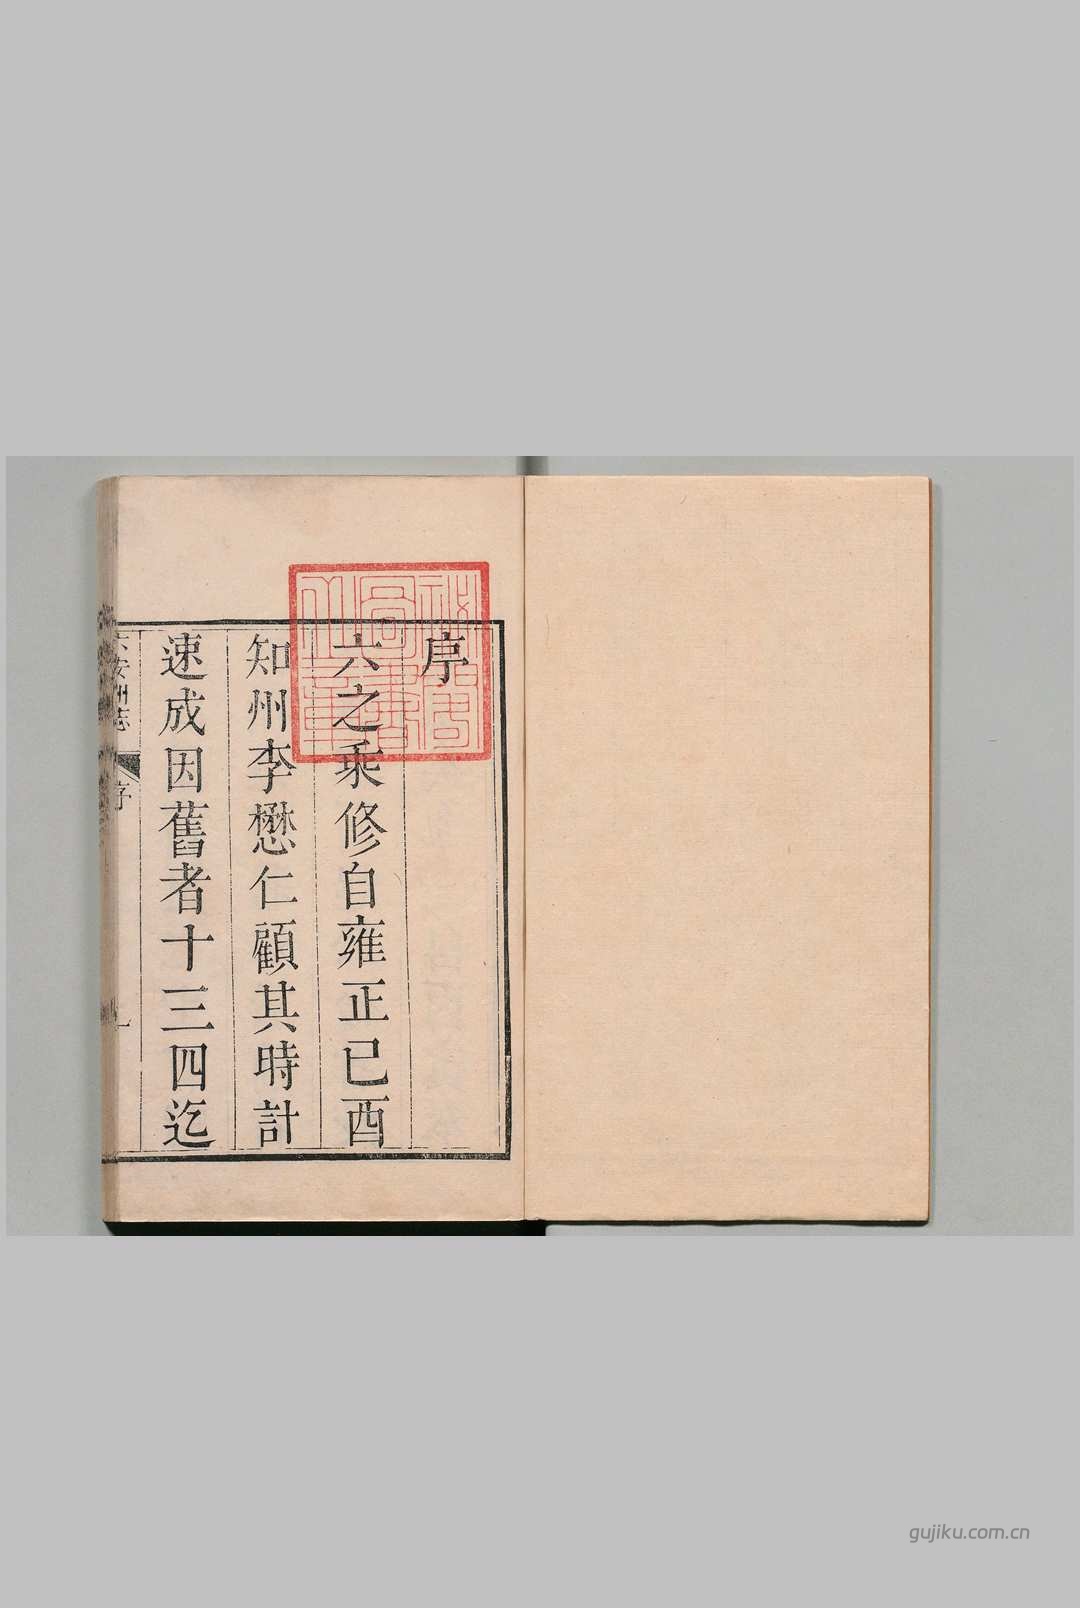 序
六之乘修自雍正己酉
知州李懋仁顧其時計
速成因舊者十三四迄
六安州志
序
一
gujiku.com.cn